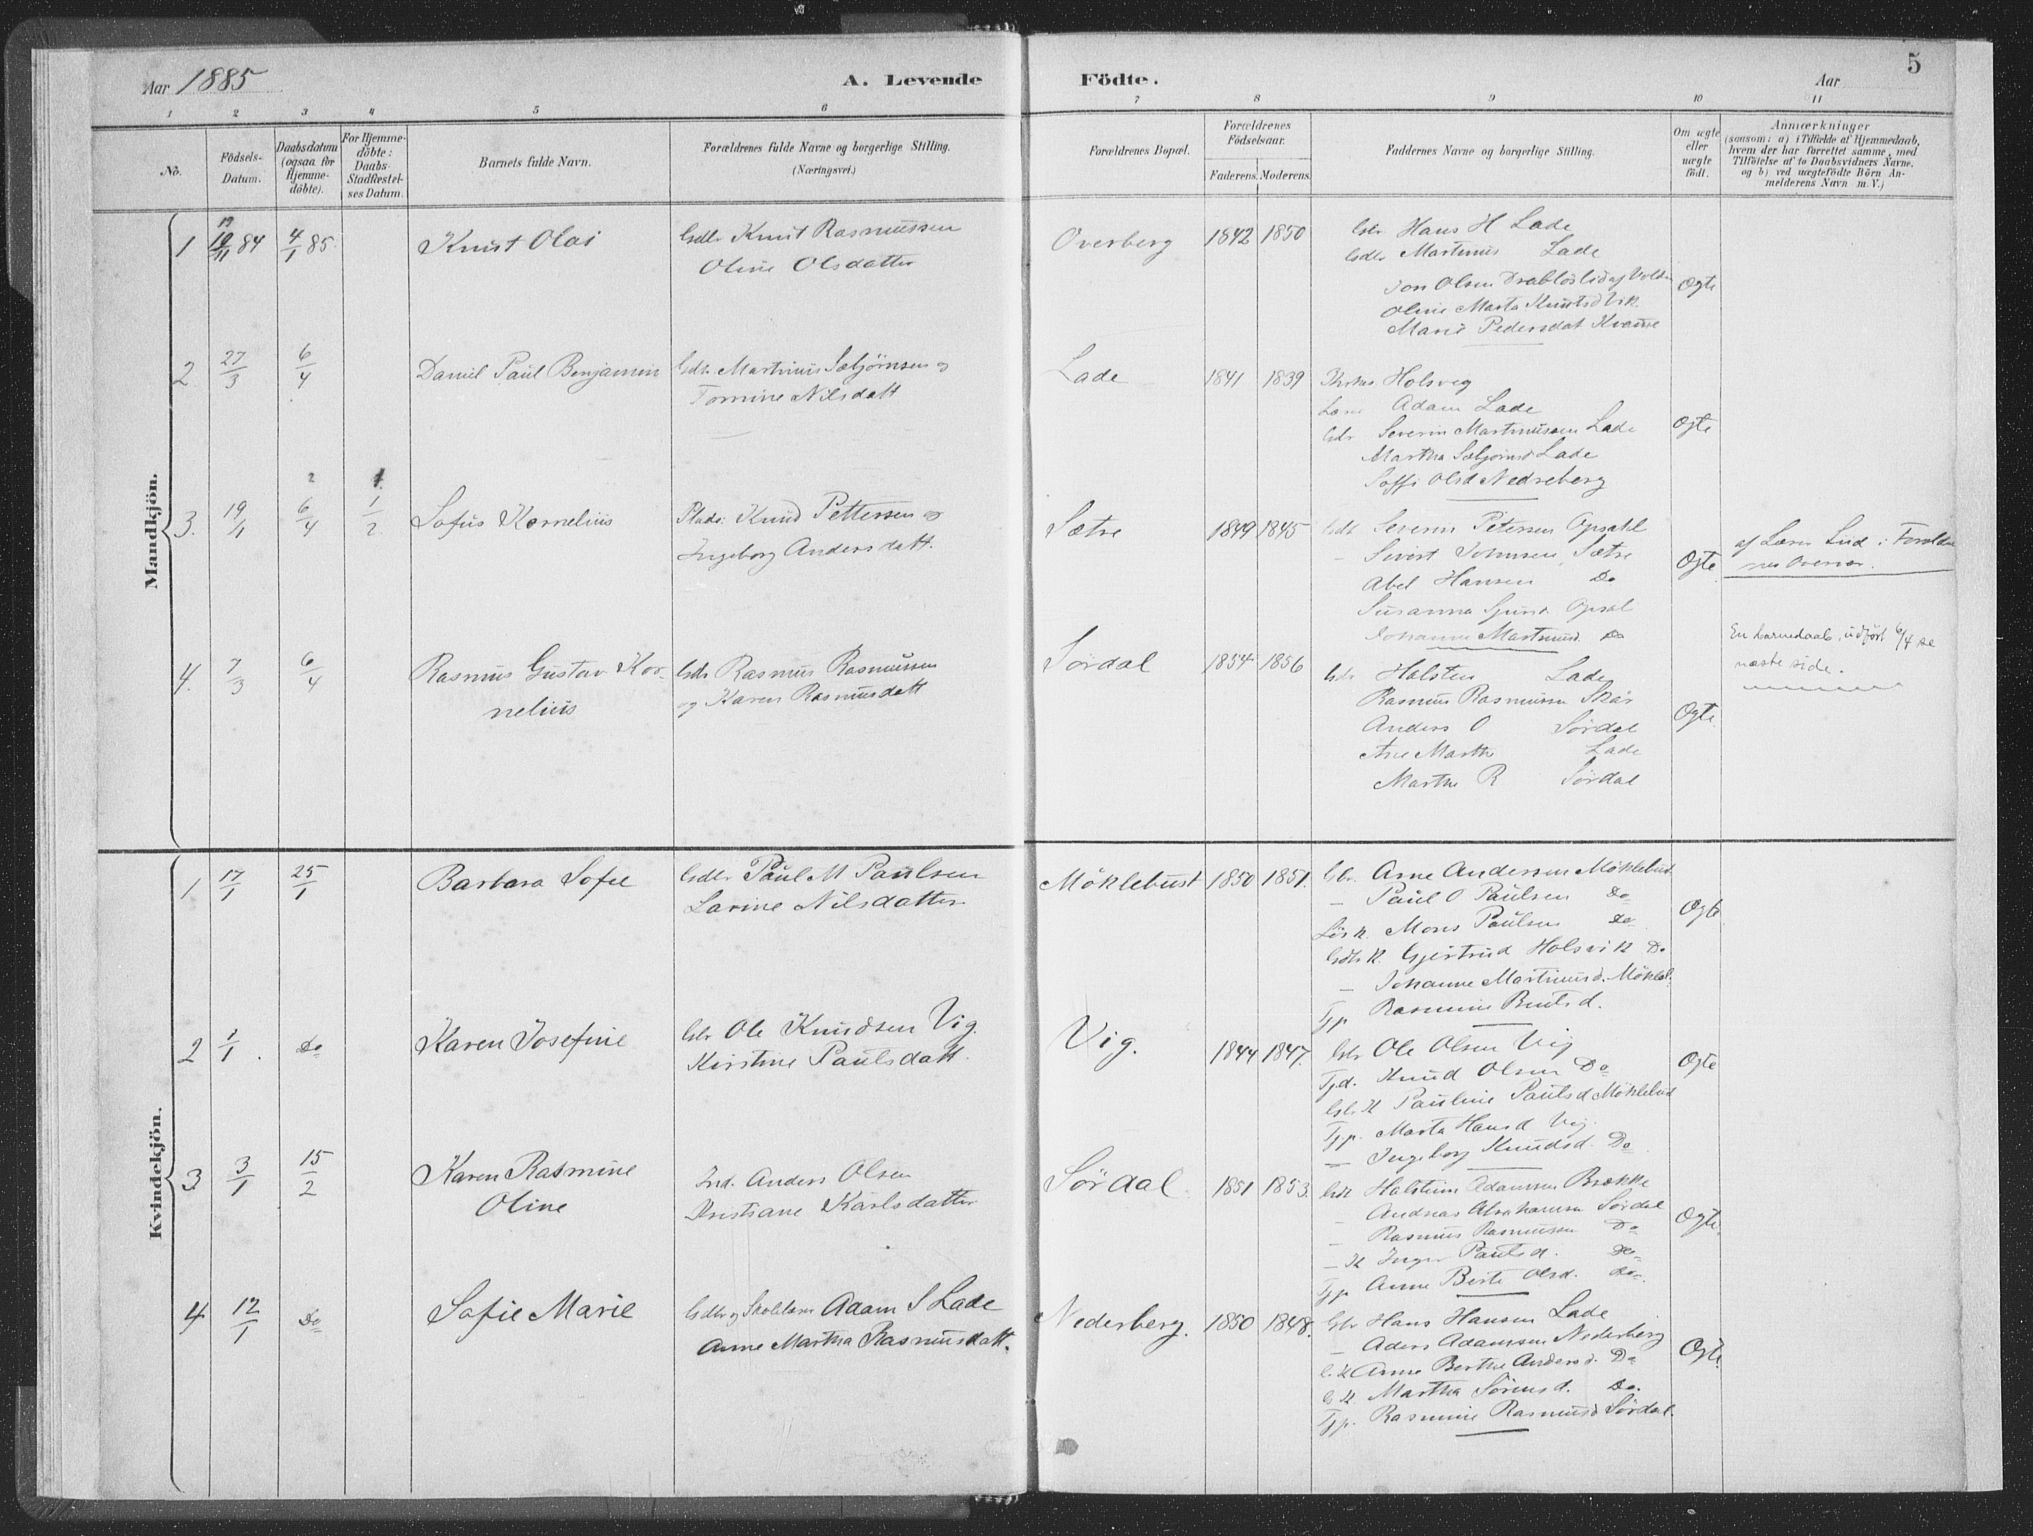 Aar 1885
A. Levende
Födte.
Aar
5
1 2 3 4 5 6 7 8 9 10 11
No.
Födsels-Datum.
Daabsdatum (ogsaa for Hjemme-döbte).
For Hjemme-döbte: Daabs-Stadfæstel-ses Datum.
Barnets fulde Navn.
Forældrenes fulde Navne og borgerlige Stilling. (Næringsvei.)
Forældrenes Bopæl.
Forældrenes Födselsaar.
Faderens. Moderens.
Faddernes Navne og borgerlige Stilling.
Om ægte eller uægte födt.
Anmærkninger (saasom: a) i Tilfælde af Hjemmedaab, hvem der har forrettet samme, med Tilföielse af to Daabsvidners Navne, og b) ved uægtefödte Börn An-melderens Navn m. V.)
Mandkjön.
1 84 4/1 85. Knut Olai Gdbr Knut Rasmussen Overberg 1842 1850 Gbr Hans H Lade
Oline Olsdatter Gdbr Martinus Lade
Jon Olsen Ægte
Oline Marta
Marie Pedersdat
2 27/3 6/4 Daniel Paul Benjamin Gdb. Martinus Sæbjørnsen og Lade 1841 1839 Holsveg
Nilsdatt Adam Lade
Gdr Severin Martinussen Lade Ægte
Martha Lade
Olsd Nedreberg
3. 19/1 6/4 1/2. Sofus Kornelius Plads: Knud Pettersen og Sætre 1849 1845 Gdb Severin Petersen Opsahl
Ingeborg Andersdatt. – Sivert Johnsen Sætre af Lærer Lind i
Abel Hansen Do Ægte
Susanna Opsal
Johanne Martinusd. Do
4. 7/3 6/4 Rasmus Gustav Kor- Gdb Rasmus Rasmussen Sördal 1854 1856 Gdr Halsten Lade En barnedaab, udført 6/4 se
nelius og Karen Rasmusdatt Rasmus Rasmussen Skår næste side.
Anders O Sørdal Ægte.
Ane Marthe Lade
Marthe R Sørdal
Kvindekjön.
1 17/1 25/1 Barbara Sofie Gdbr Paul M Paulsen Möklebust 1850 1851. Gbr. Arne Andersen Möklebust
Larine Nilsdatter – Paul O Paulsen Do Ægte
Mons Paulsen Do
Gjertrud Holsvik Do
– Johanne Martinusd. Möklb.
Tjp Rasmine
2 1/1. Do Karen Josefine Gbr Ole Knudsen Vig. Vig. 1844 1847. Gbr Ole Olsen Vig Ægte
Kirstine Paulsdatt. Tjd. Knud Olsen Do
Gbr.K Pauline Paulsd Möklebust
Tjp. Marta Hansd Vig.
– Ingeborg Knudsd. Do
3 3/1 15/2 Karen Rasmine Ind. Anders Olsen Sördal. 1851 1853. Gdb Halstein Adamsen Brække
Oline Kristiane Karlsdatter – Andreas Abrahamsen Sørdal Ægte
– Rasmus Rasmussen Do
– K Inger Paulsd. Do
Tjp Anne Birte Olsd. Do
4 12/1 Do Sofie Marie Gdbr og Skolelærer Adam S Lade Nederberg. 1850 1848. Gbr Hans Hansen Lade
Anne Martha Rasmusdatt. – Adamsen Nederberg Ægte.
Anne Berthe Andersd. Do
Martha Sörensd. Do.
Tjp. Rasmine Rasmusd Sördal.